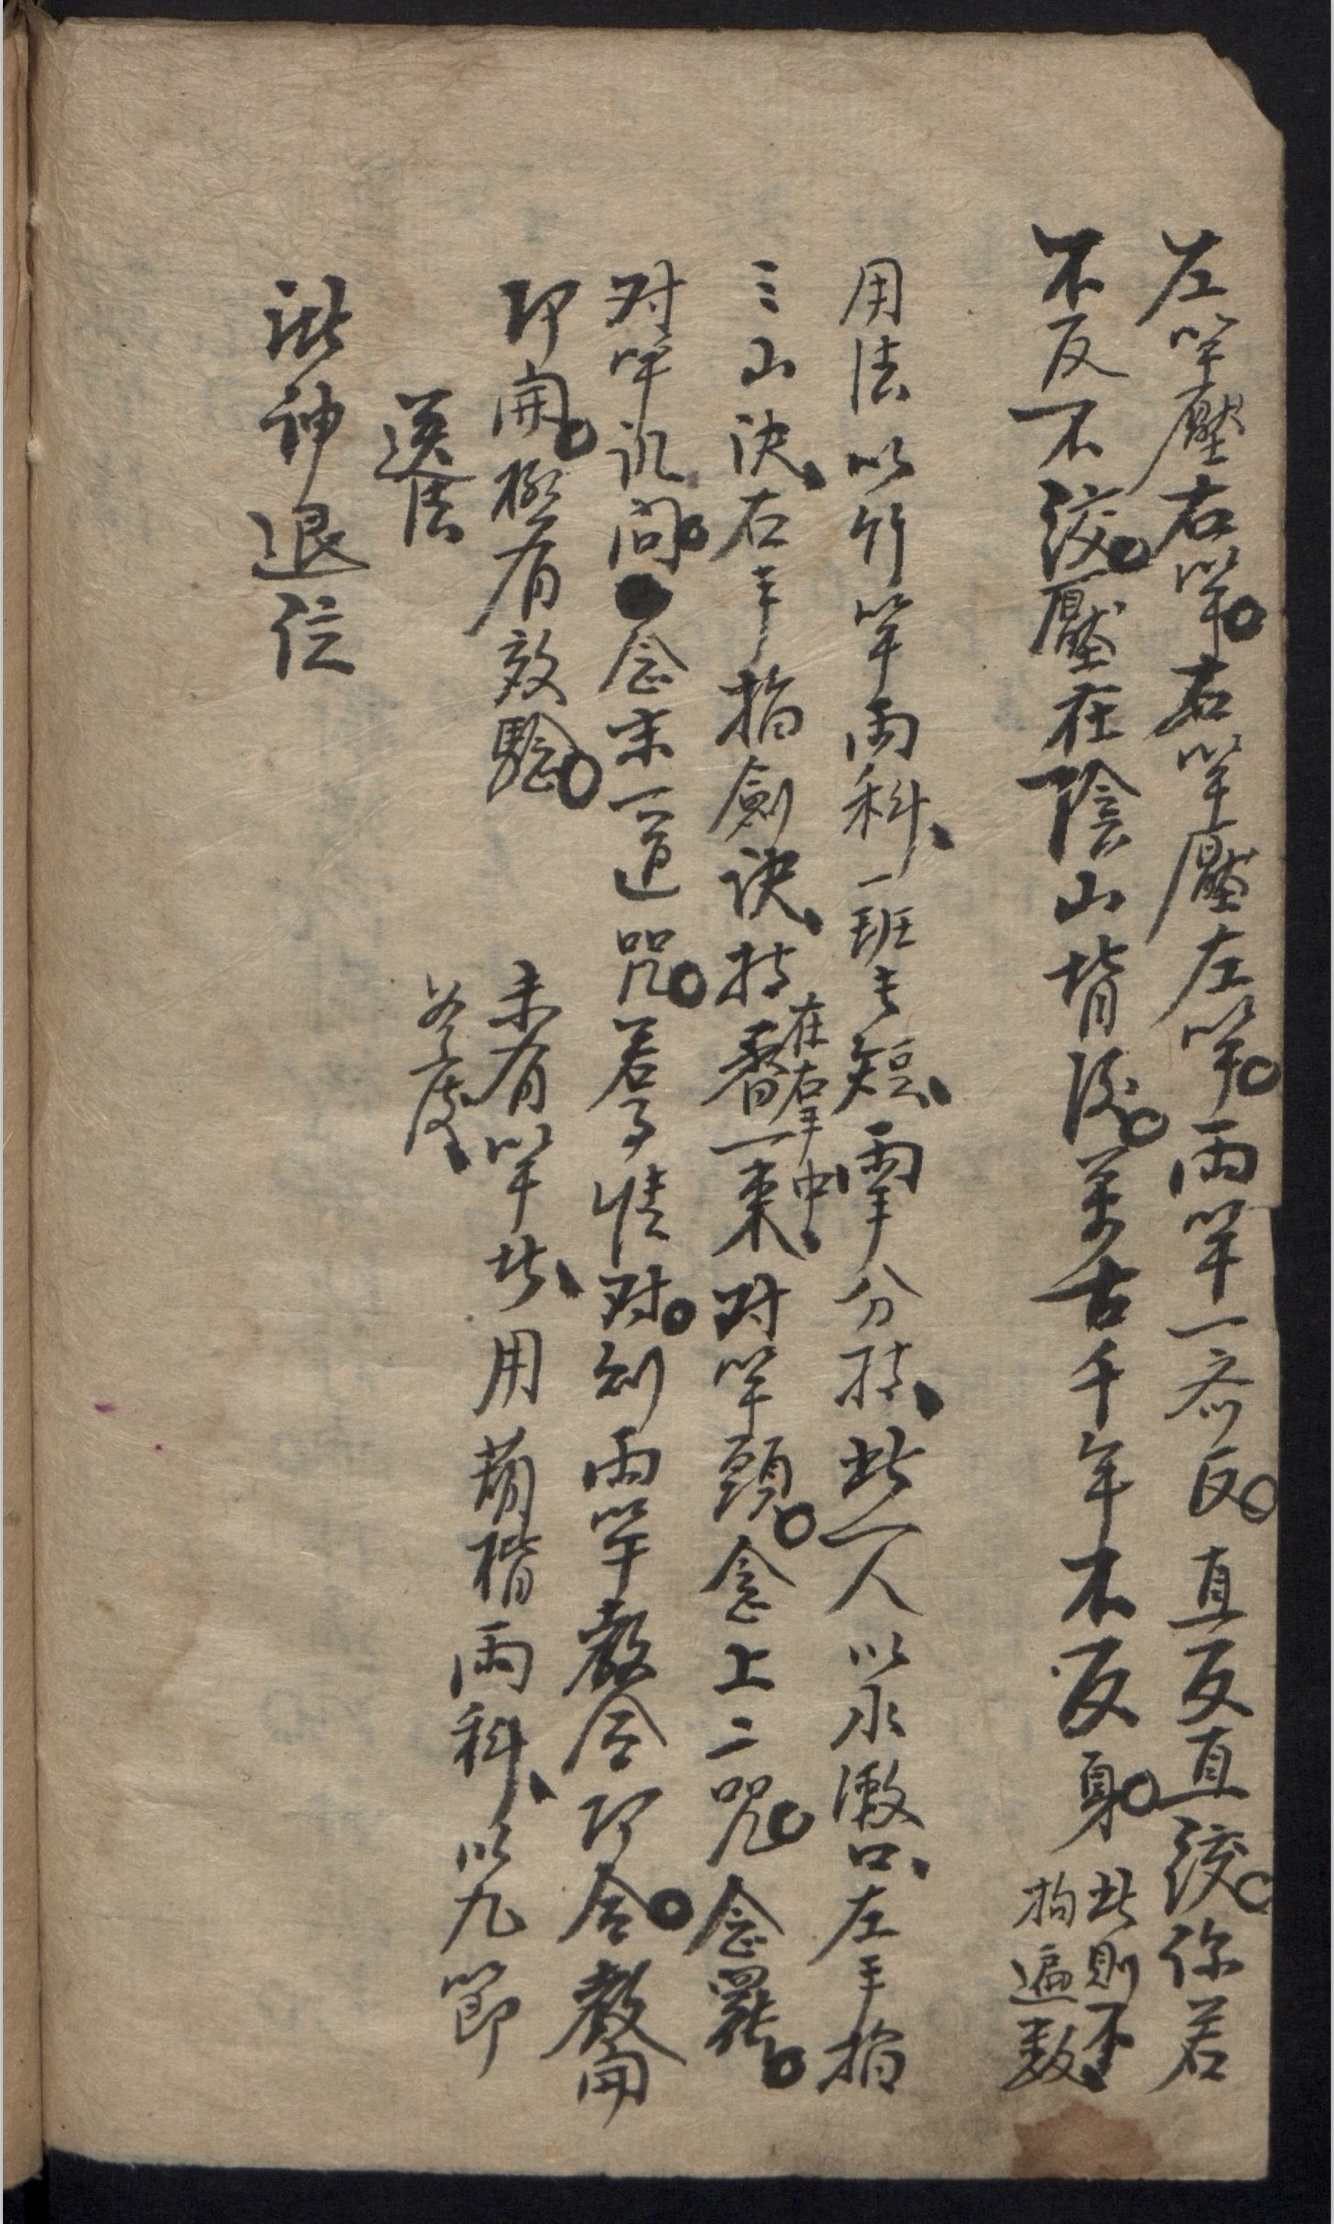 左竿壓右竿。右竿壓左竿。兩竿一齐反。直反直絞。你若
不反不絞。壓在陰山背後。萬古千年不反身。此則不拘遍数
用法以竹竿兩科、一班長短、兩手分持、此一人以水漱口、左手掐
三山決、右手掐劍訣、持香一束在右手中、对竿頭。念上二咒。念罷。
对竿訊问。念末一道咒。若事情对。則兩竿教合即合。教開
即開。極有效驗。
未有竿此、用萠楷兩科、以九節
為度、
送法
諕神退位